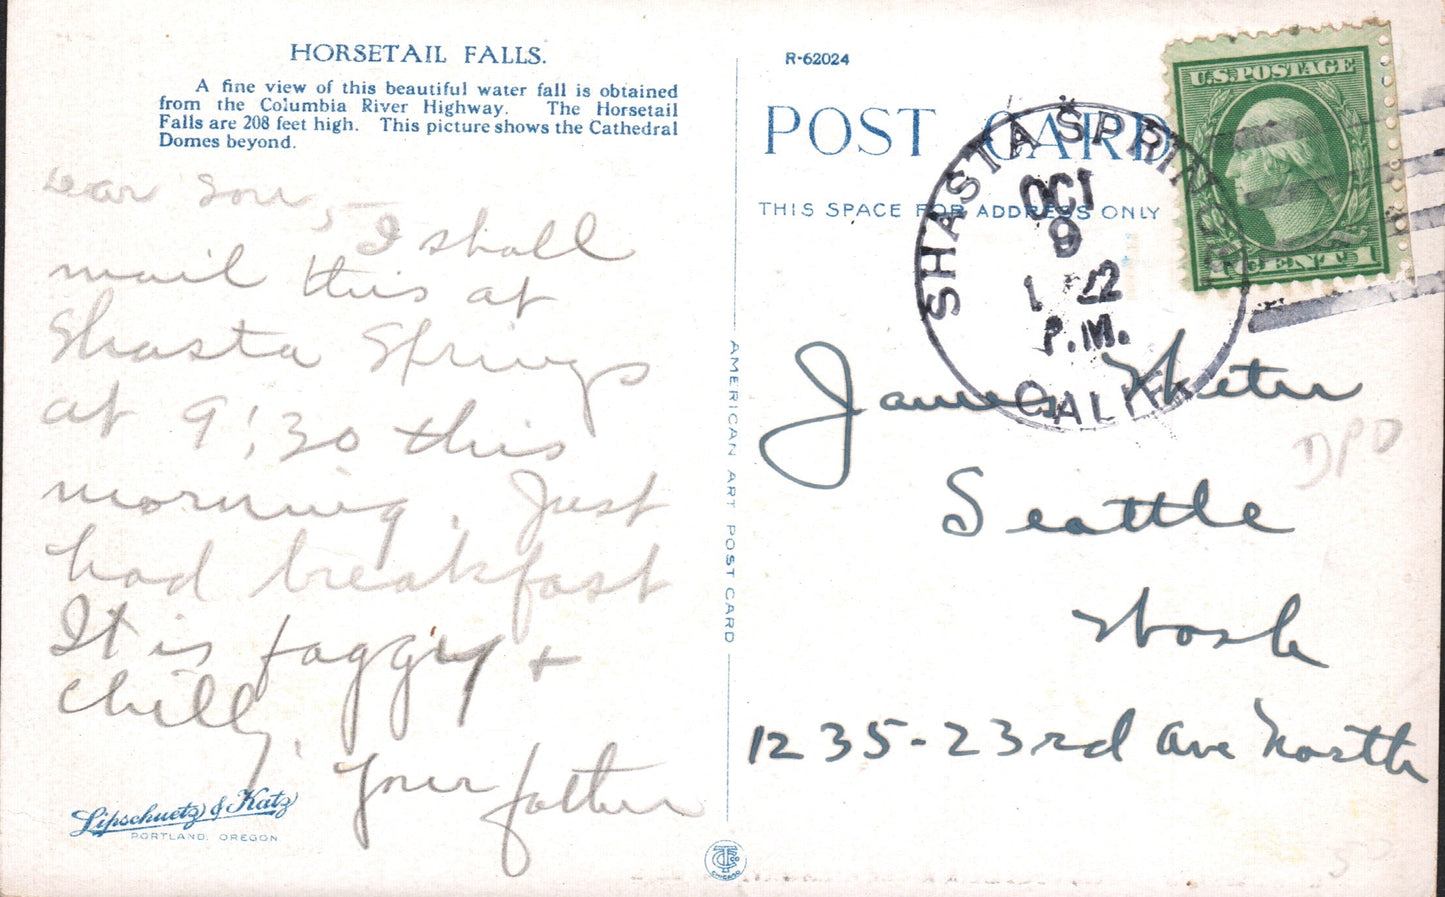 HORSETAIL FALLS.
A fine view of this beautiful water fall is obtained
from the Columbia River Highway. The Horsetail
Falls are 208 feet high. This picture shows the Cathedral
Domes beyond.
Dear Son,
I shall
mail this at
Shasta Springs
at 9:30 this
morning. Just
had breakfast
It is foggy +
chilly.
Your father
Lipschuetz & Katz
PORTLAND, OREGON
AMERICAN ART POST CARD
CHICAGO
R-62024
POST CARD
THIS SPACE FOR ADDRESS ONLY
SHASTA SPRINGS
OCT
9
1 22
P.M.
CALIF.
U.S. POSTAGE
1 CENT 1
James
Seattle
Wash
1235-23rd Ave North
DPO